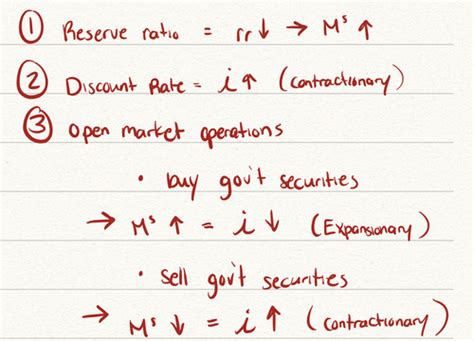 ① Reserve ratio = rr↓ → Mˢ ↑
② Discount Rate = i↑ (Contractionary)
③ Open market operations
• buy gov't securities
→ Mˢ ↑ = i ↓ (Expansionary)
• sell gov't securities
→ Mˢ ↓ = i ↑ (contractionary)